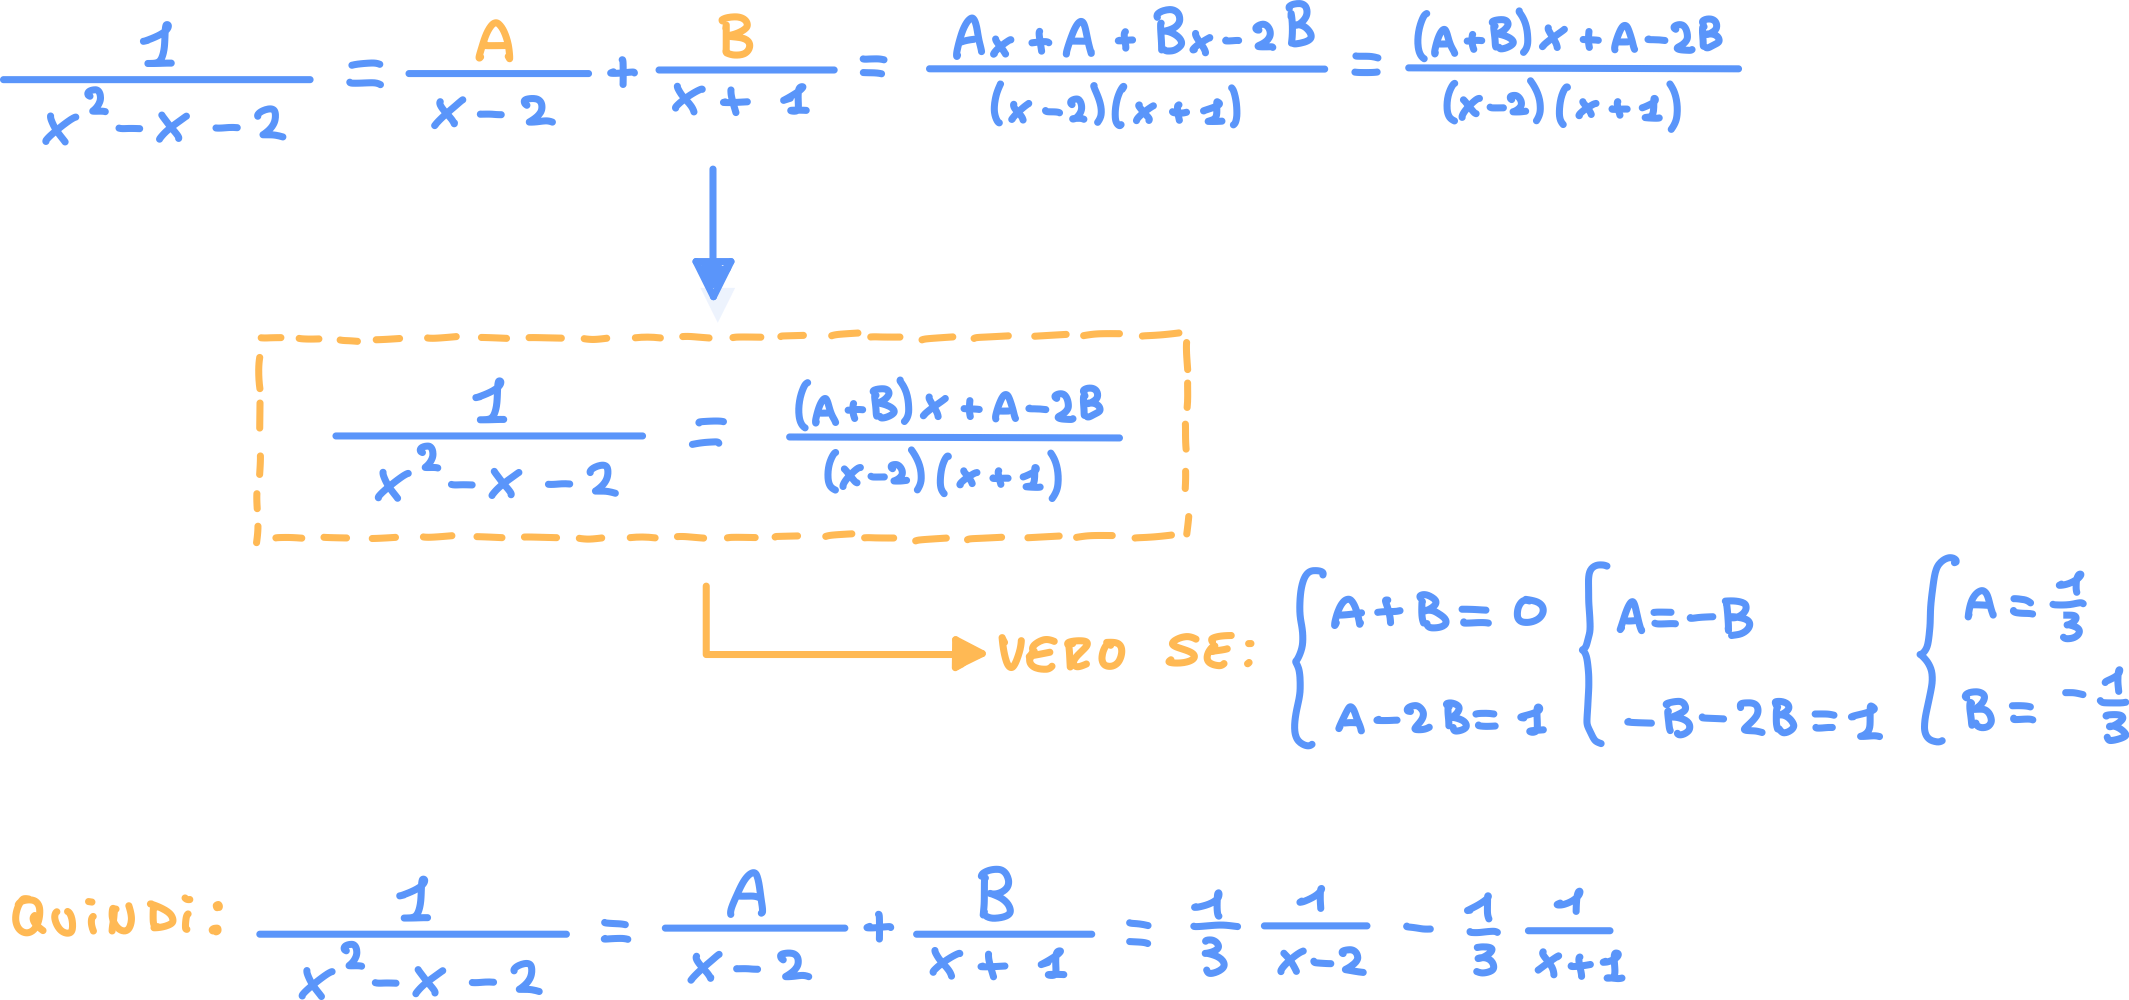 1/(x²-x-2) = A/(x-2) + B/(x+1) = (Ax+A+Bx-2B)/((x-2)(x+1)) = ((A+B)x+A-2B)/((x-2)(x+1))
1/(x²-x-2) = ((A+B)x+A-2B)/((x-2)(x+1))
VERO SE: { A+B=0 { A=-B { A=1/3
A-2B=1 -B-2B=1 B=-1/3
QUiNDi: 1/(x²-x-2) = A/(x-2) + B/(x+1) = 1/3 1/(x-2) - 1/3 1/(x+1)